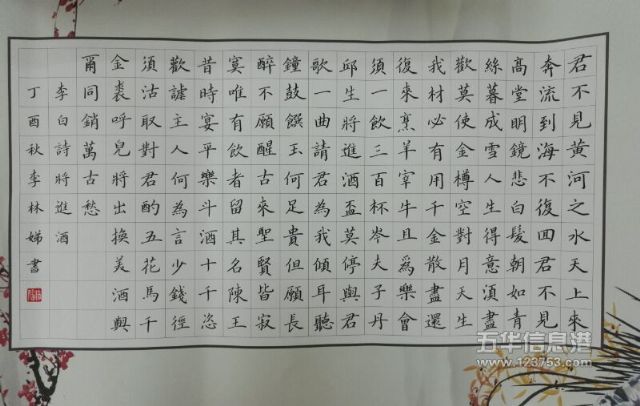 君不見黃河之水天上來
奔流到海不復囬君不見
高堂明鏡悲白髮朝如青
絲暮成雪人生得意湏盡
歡莫使金樽空對月天生
我材必有用千金散盡還
復來烹羊宰牛且爲樂會
須一飲三百杯岑夫子丹
邱生將進酒盃莫停與君
歌一曲請君為我傾耳聽
鐘鼓饌玉何足貴但願長
醉不願醒古來聖賢皆寂
寞唯有飲者留其名陳王
昔時宴平樂斗酒十千恣
歡謔主人何為言少錢徑
須沽取對君酌五花馬千
金裘呼兒將出換美酒與
爾同銷萬古愁
李白詩將進酒
丁酉秋李林娣書
五华信息港
www.123753.com